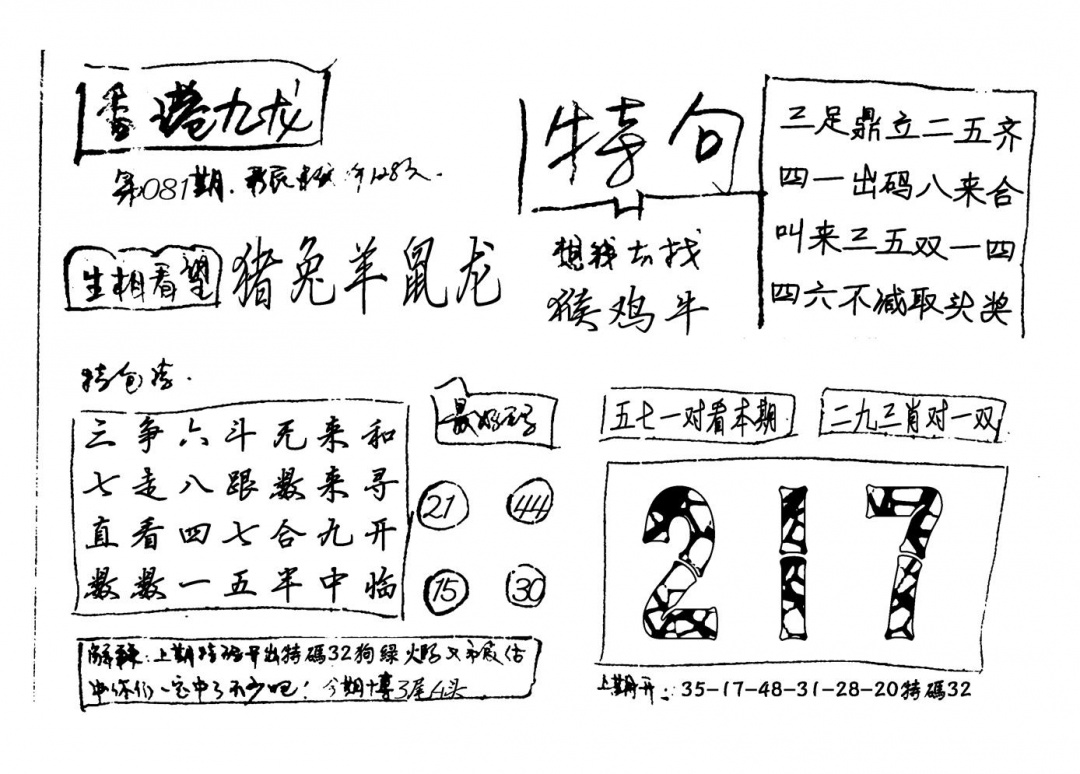 香港九龙
第081期.
特句
三足鼎立二五齐
四一出码八来合
叫来三五双一四
四六不减取头奖
生相看望
猪兔羊鼠龙
想我去找
猴鸡牛
三争六斗无来和
七走八跟数来寻
直看四七合九开
数数一五半中临
21 44
15 30
五七一对看本期
二九三肖对一双
217
上期特码开出特碼32狗綠
中你们一定中了不少吧！今期博3尾4头
上期开：35-17-48-31-28-20特碼32